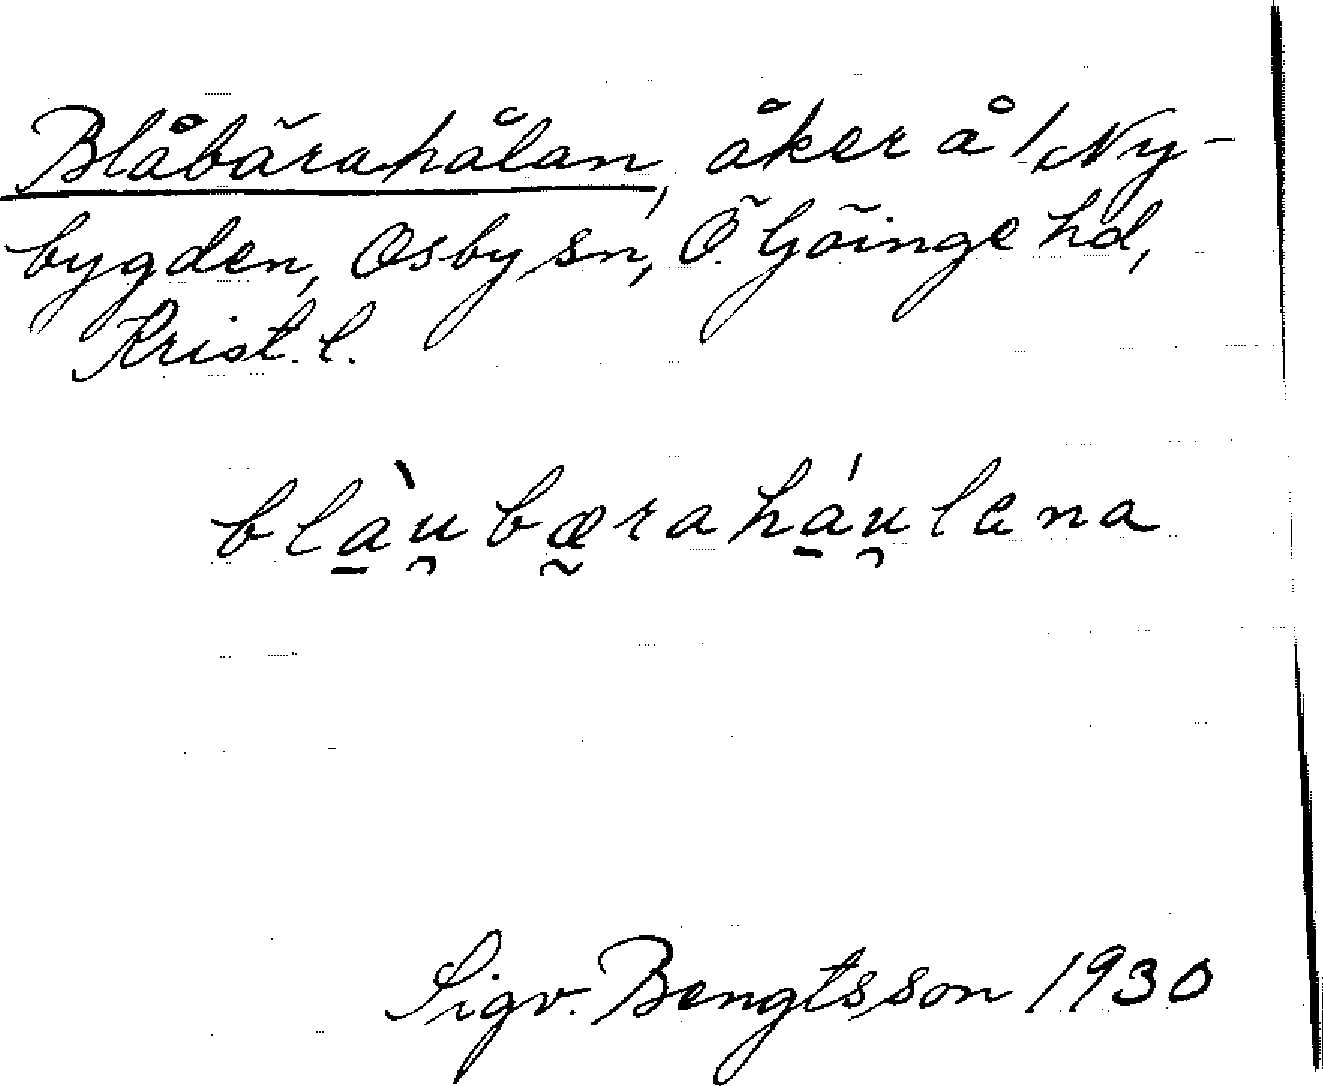 Blåbärahålan, åker å 1 Ny-
bygden, Osby sn, Ö. Göinge hd,
Krist. l.
blà̱u̯bæ̰rahá̱u̯lena
Sigv. Bengtsson 1930